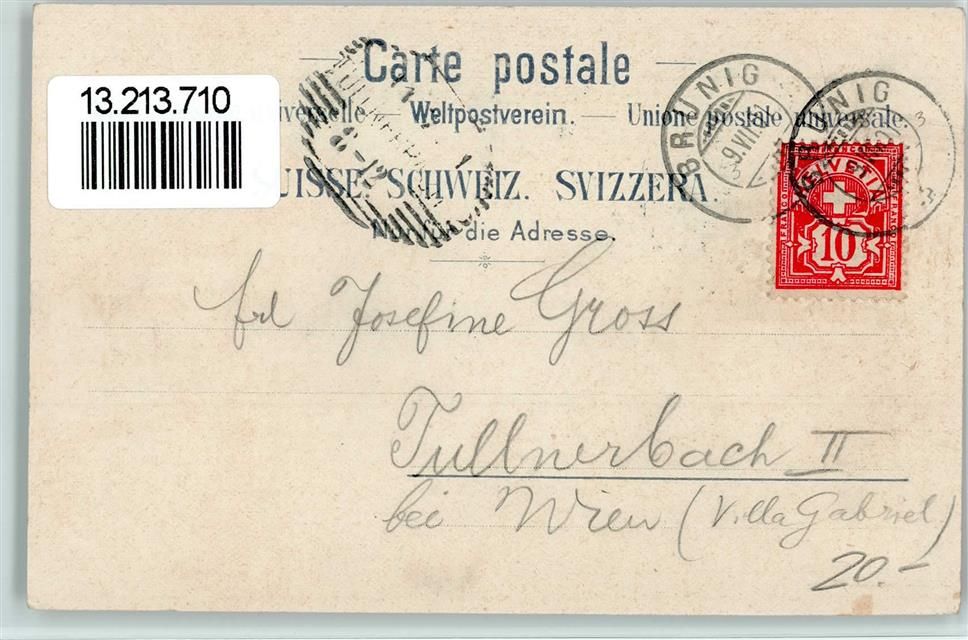 13.213.710
Carte postale
universelle – Weltpostverein. – Unione postale universale.
SUISSE. SCHWEIZ. SVIZZERA.
Nur für die Adresse.
BRÜNIG
BRÜNIG
FRANCO
HELVETIA
FRANCO
10
frl Josefine Gross
Tullnerbach II
bei Wien (Villa Gabriel)
20.-